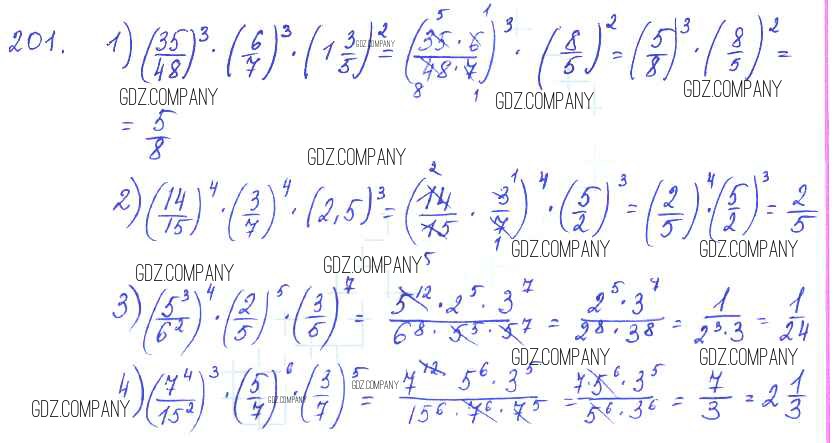 201. 1) (35/48)³ · (6/7)³ · (1 3/5)² = (35 · 6 / 48 · 7)³ · (8/5)² = (5/8)³ · (8/5)² =
= 5/8
2) (14/15)⁴ · (3/7)⁴ · (2,5)³ = (14/15 · 3/7)⁴ · (5/2)³ = (2/5)⁴ · (5/2)³ = 2/5
3) (5³/6²)⁴ · (2/5)⁵ · (3/5)⁷ = 5¹² · 2⁵ · 3⁷ / 6⁸ · 5⁵ · 5⁷ = 2⁵ · 3⁷ / 2⁸ · 3⁸ = 1 / 2³ · 3 = 1/24
4) (7⁴/15²)³ · (5/7)⁶ · (3/7)⁵ = 7¹² 5⁶ · 3⁵ / 15⁶ · 7⁶ · 7⁵ = 7 · 5⁶ · 3⁵ / 5⁶ · 3⁶ = 7/3 = 2 1/3
GDZ.COMPANY
GDZ.COMPANY
GDZ.COMPANY
GDZ.COMPANY
GDZ.COMPANY
GDZ.COMPANY
GDZ.COMPANY
GDZ.COMPANY
GDZ.COMPANY
GDZ.COMPANY
GDZ.COMPANY
GDZ.COMPANY
GDZ.COMPANY
GDZ.COMPANY